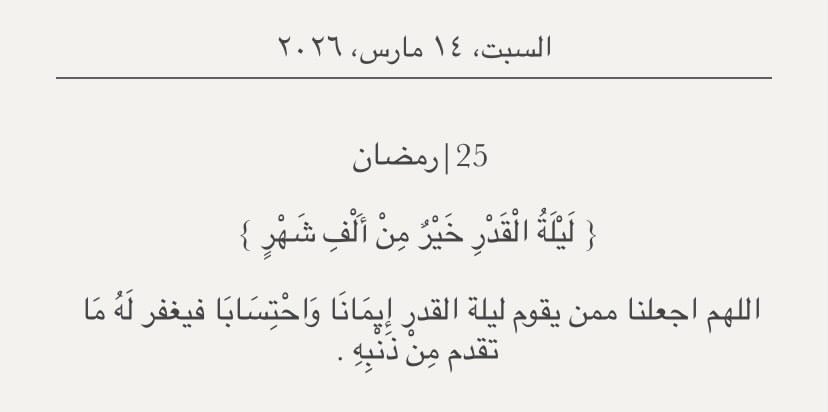 السبت، ١٤ مارس، ٢٠٢٦
25|رمضان
{ لَيْلَةُ الْقَدْرِ خَيْرٌ مِنْ أَلْفِ شَهْرٍ }
اللهم اجعلنا ممن يقوم ليلة القدر إِيمَانَا وَاحْتِسَابَا فيغفر لَهُ مَا
تقدم مِنْ ذَنْبِهِ .